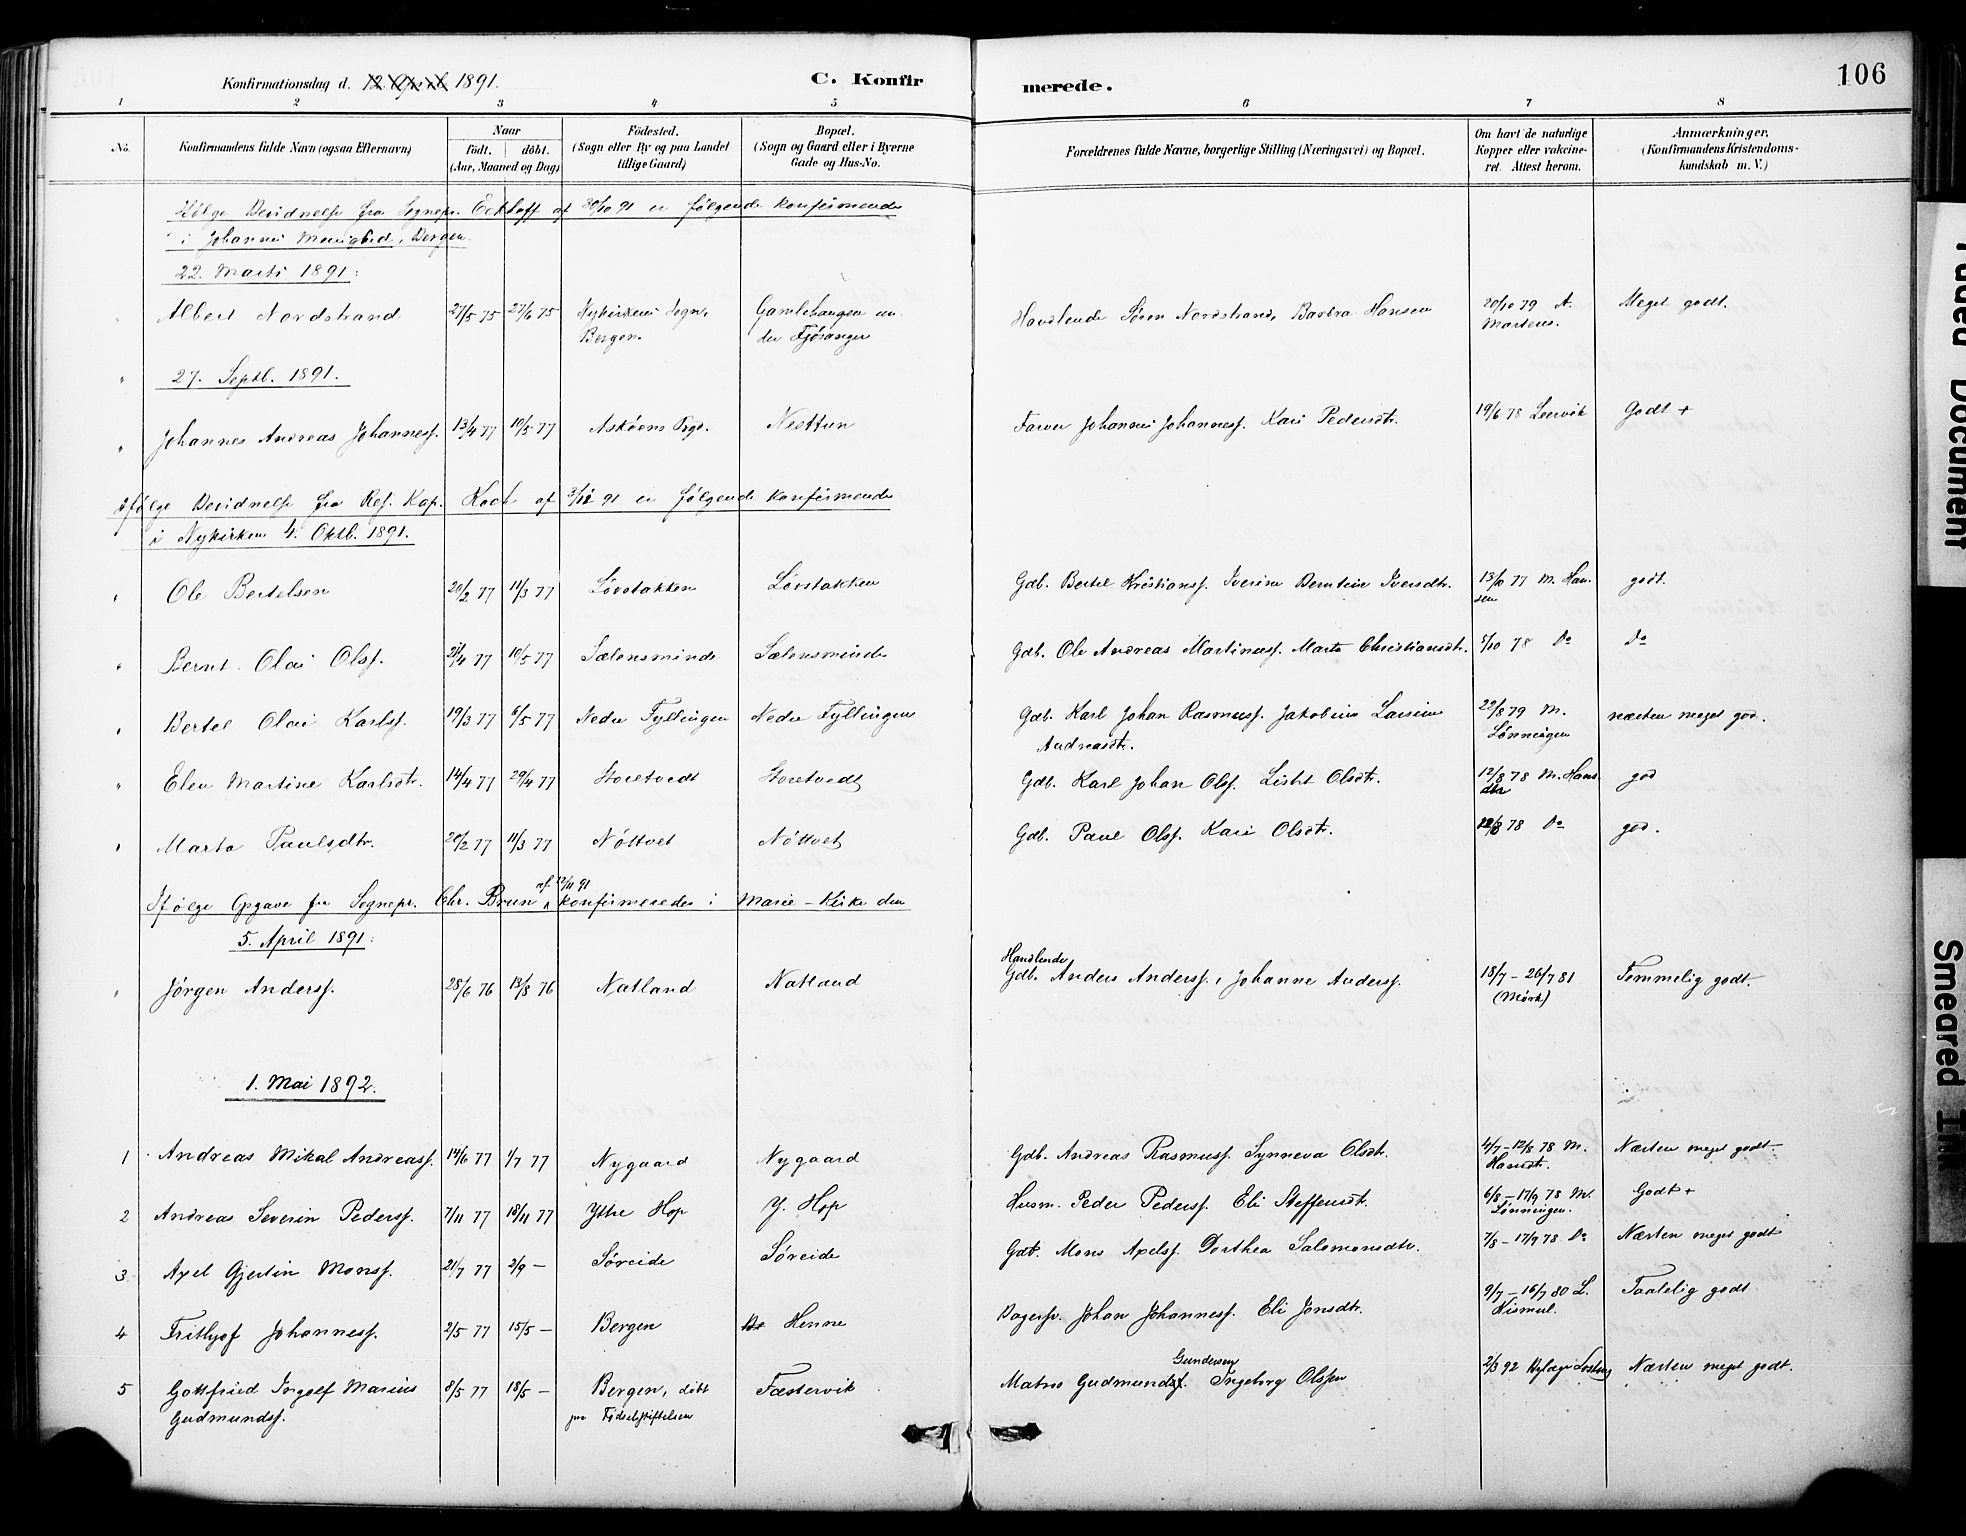 Konfirmationsdag d. 12. April 1891.
C. Konfirmerede.
106
1 2 3 4 5 6 7 8
No.
Konfirmandens fulde Navn (ogsaa Efternavn)
Naar
født. døbt.
(Aar, Maaned og Dag)
Fødested.
(Sogn eller By og paa Landet
tillige Gaard)
Bopæl.
(Sogn og Gaard eller i Byerne
Gade og Hus-No.
Forældrenes fulde Navne, borgerlige Stilling (Næringsvei) og Bopæl.
Om havt de naturlige
Kopper eller vakcine-
ret. Attest herom.
Anmærkninger.
(Konfirmandens Kristendoms-
kundskab m. V.)
Ifølge Bevidnelse fra Sognepr. Eckhoff af 30/10 91 er følgende konfirmerede
i Johannes Menighed, Bergen.
22. Marts 1891:
" Albert Nordstrand 27/5 75 27/6 75 Nykirkens Sogn, Bergen. Gamlehaugen under Fjøsanger Handlende Søren Nordstrand, Barbra Hansen 20/10 79 A. Martens. Meget godt.
" 27. Septb. 1891.
" Johannes Andreas Johannesf. 13/4 77 10/5 77 Askøens Prgd. Nesttun Farver Johannes Johannesf. Kari Pedersdtr. 19/6 78 Leervik Godt +
Ifølge Bevidnelse fra Res. Kap. Koch af 3/12 91 er følgende konfirmerede
i Nykirken 4. Oktb. 1891.
" Ole Bertelsen 20/2 77 11/3 77 Løvstakken Løvstakken Gdb. Bertel Kristiansf. Iverine Berntine Iversdtr. 13/10 77 M. Hansen godt.
" Bernt Olai Olsf. 21/4 77 10/5 77 Sælensminde Sælensminde Gdb. Ole Andreas Martinusf. Marta Christiansdtr. 5/10 78 Do Do
" Bertel Olai Karlsf. 19/3 77 6/5 77 Nedre Fyllingen Nedre Fyllingen Gdb. Karl Johan Rasmusf. Jakobine Larsine Andreasdtr. 22/8 79 M. Lønningen næsten meget god.
" Elen Martine Karlsdtr. 14/4 77 29/4 77 Storetvedt Storetvedt Gdb. Karl Johan Olsf. Lisbet Olsdtr. 12/8 78 M. Hansdtr god
" Marta Paulsdtr. 20/2 77 11/3 77 Nøttvet Nøttvet Gdb. Paul Olsf. Kari Olsdtr. 12/8 78 Do god.
Ifølge Opgave fra Sognepr. Chr. Brun af 12/11 91 konfirmeredes i Marie-Kirke den
5. April 1891:
" Jørgen Andersf. 28/6 76 13/8 76 Natland Natland Handlende Gdb. Anders Andersf., Johanne Andersf. 18/7 - 26/7 81 (Mørk) Temmelig godt.
1. Mai 1892.
1 Andreas Mikal Andreasf. 14/6 77 1/7 77 Nygaard Nygaard Gdb. Andreas Rasmusf. Synneva Olsdtr. 4/7 - 12/8 78 M. Hansdtr. Næsten meget godt.
2 Andreas Severin Pedersf. 7/11 77 18/11 77 Ytre Hop Y. Hop Husm. Peder Pedersf. Eli Steffensdtr. 6/8 - 17/9 78 M. Lønningen. Godt +
3 Axel Gjertin Monsf. 21/7 77 2/9 - Søreide Søreide Gdb. Mons Axelsf. Dorthea Salomonsdtr. 7/8 - 17/9 78 Do Næsten meget godt
4 Frithjof Johannesf. 2/5 77 15/5 - Bergen Do Henne Bagersv. Johan Johannesf. Eli Jonsdtr. 9/7 - 16/7 80 L. Taalelig godt
5 Gottfried Ingolf Marius Gudmundsf. 8/5 77 18/5 - Bergen, døbt paa Fødselsstiftelsen Fæstervik Matros Gudmund Gundersen Ingeborg Olsen 2/3 92 Næsten meget godt.
Faded Document
Smeared Ink